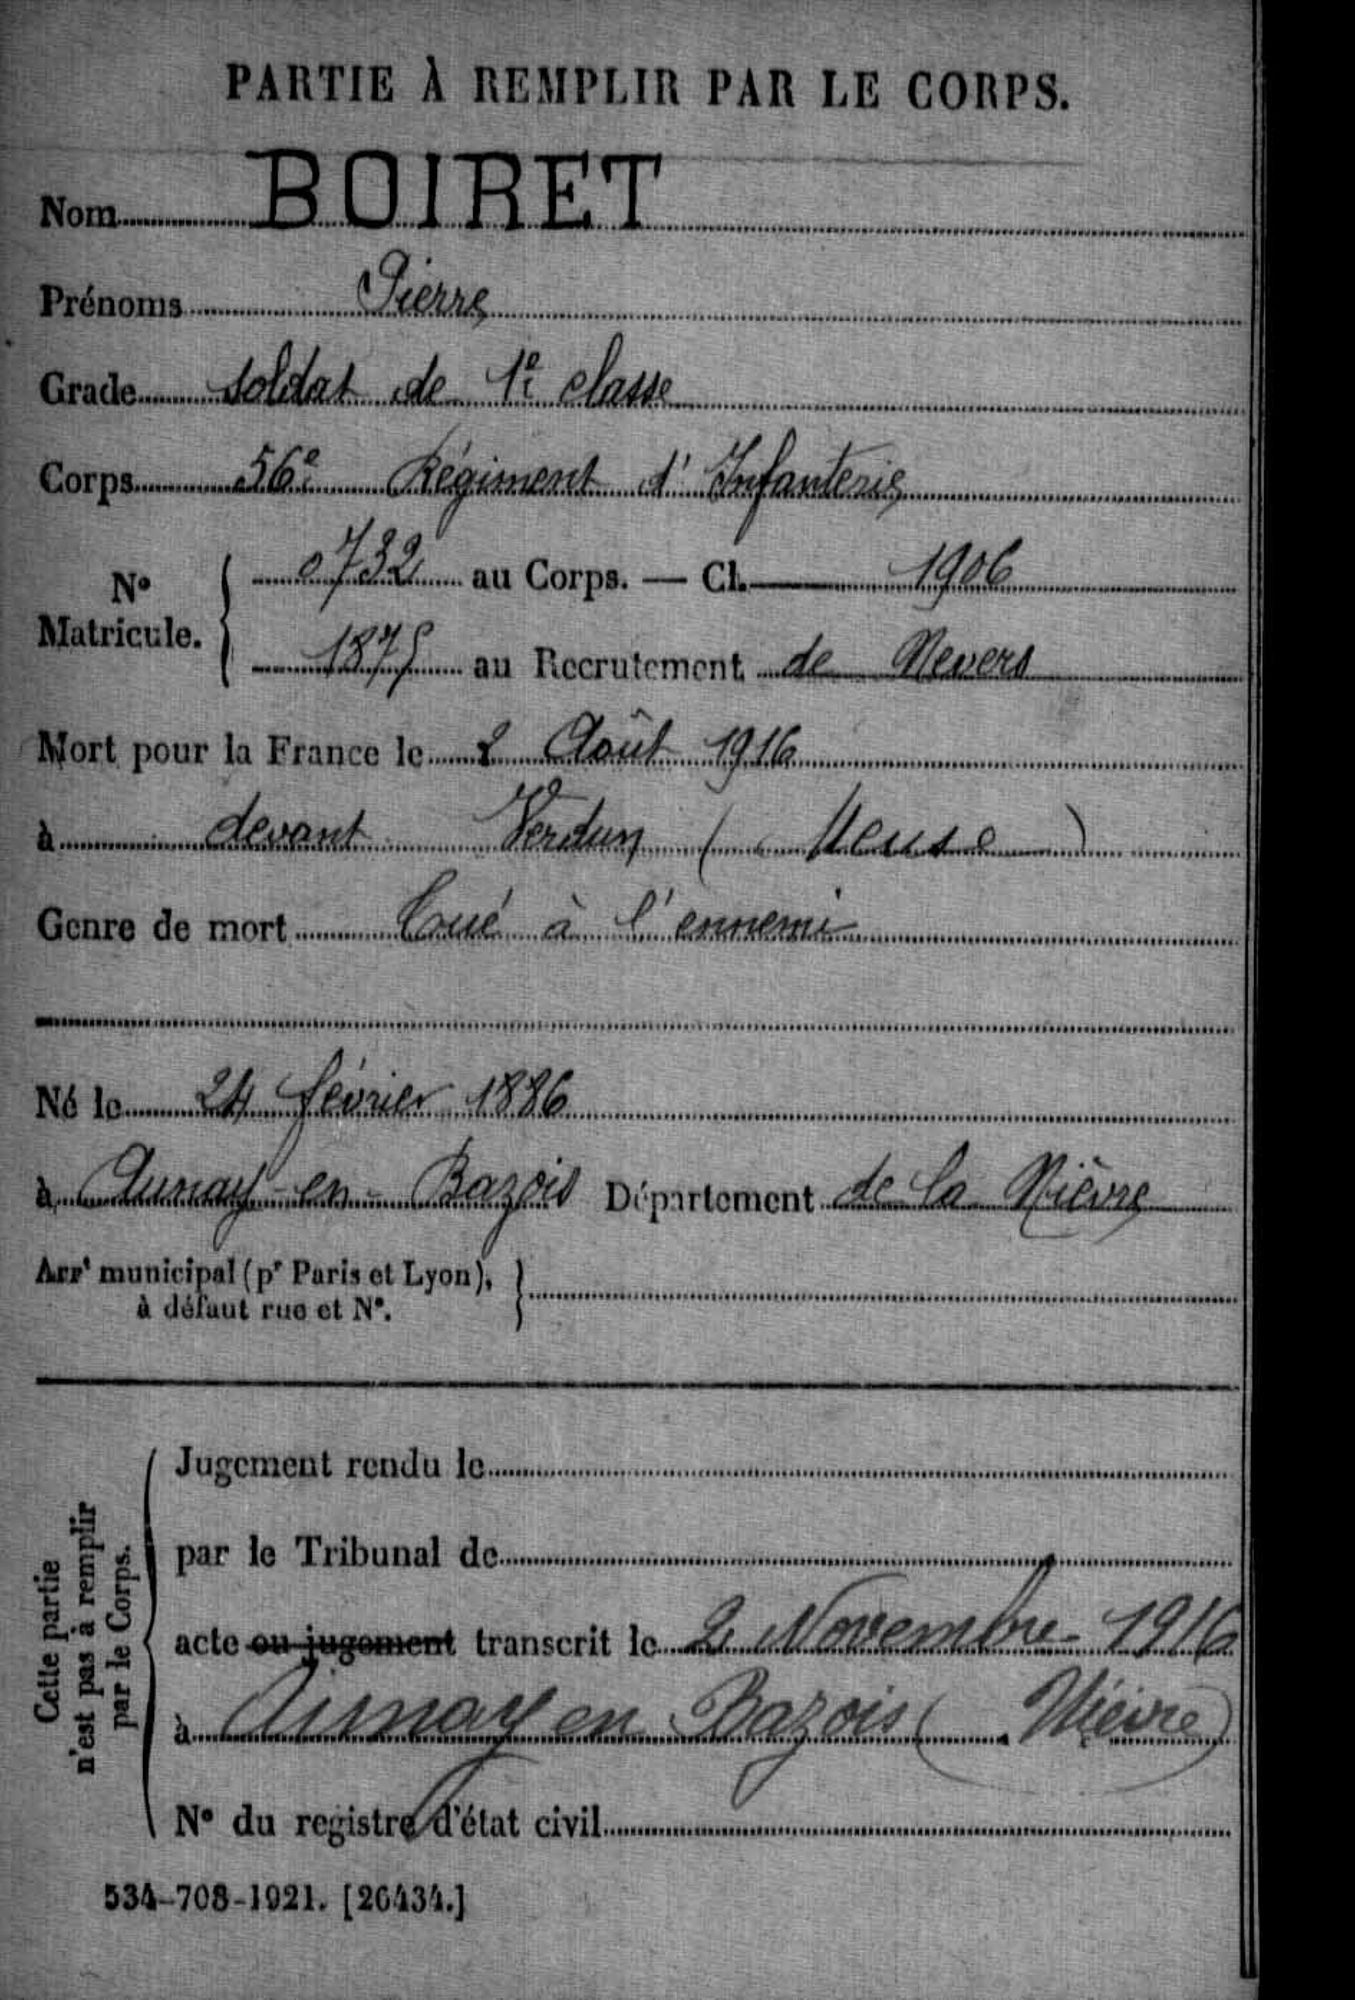 PARTIE À REMPLIR PAR LE CORPS.
Nom BOIRET
Prénoms Pierre
Grade soldat de 1e classe
Corps 56e Régiment d'Infanterie
No Matricule. 0732 au Corps. — Cl. 1906
1875 au Recrutement de Nevers
Mort pour la France le 2 Août 1916
à devant Verdun (Meuse)
Genre de mort Tué à l'ennemi
Né le 24 février 1886
à Aunay-en-Bazois Département de la Nièvre
Arrt municipal (pr Paris et Lyon),
à défaut rue et No.
Cette partie
n'est pas à remplir
par le Corps.
Jugement rendu le
par le Tribunal de
acte ou jugement transcrit le 2 Novembre 1916
à Aunay en Bazois (Nièvre)
No du registre d'état civil
534-708-1921. [26434.]